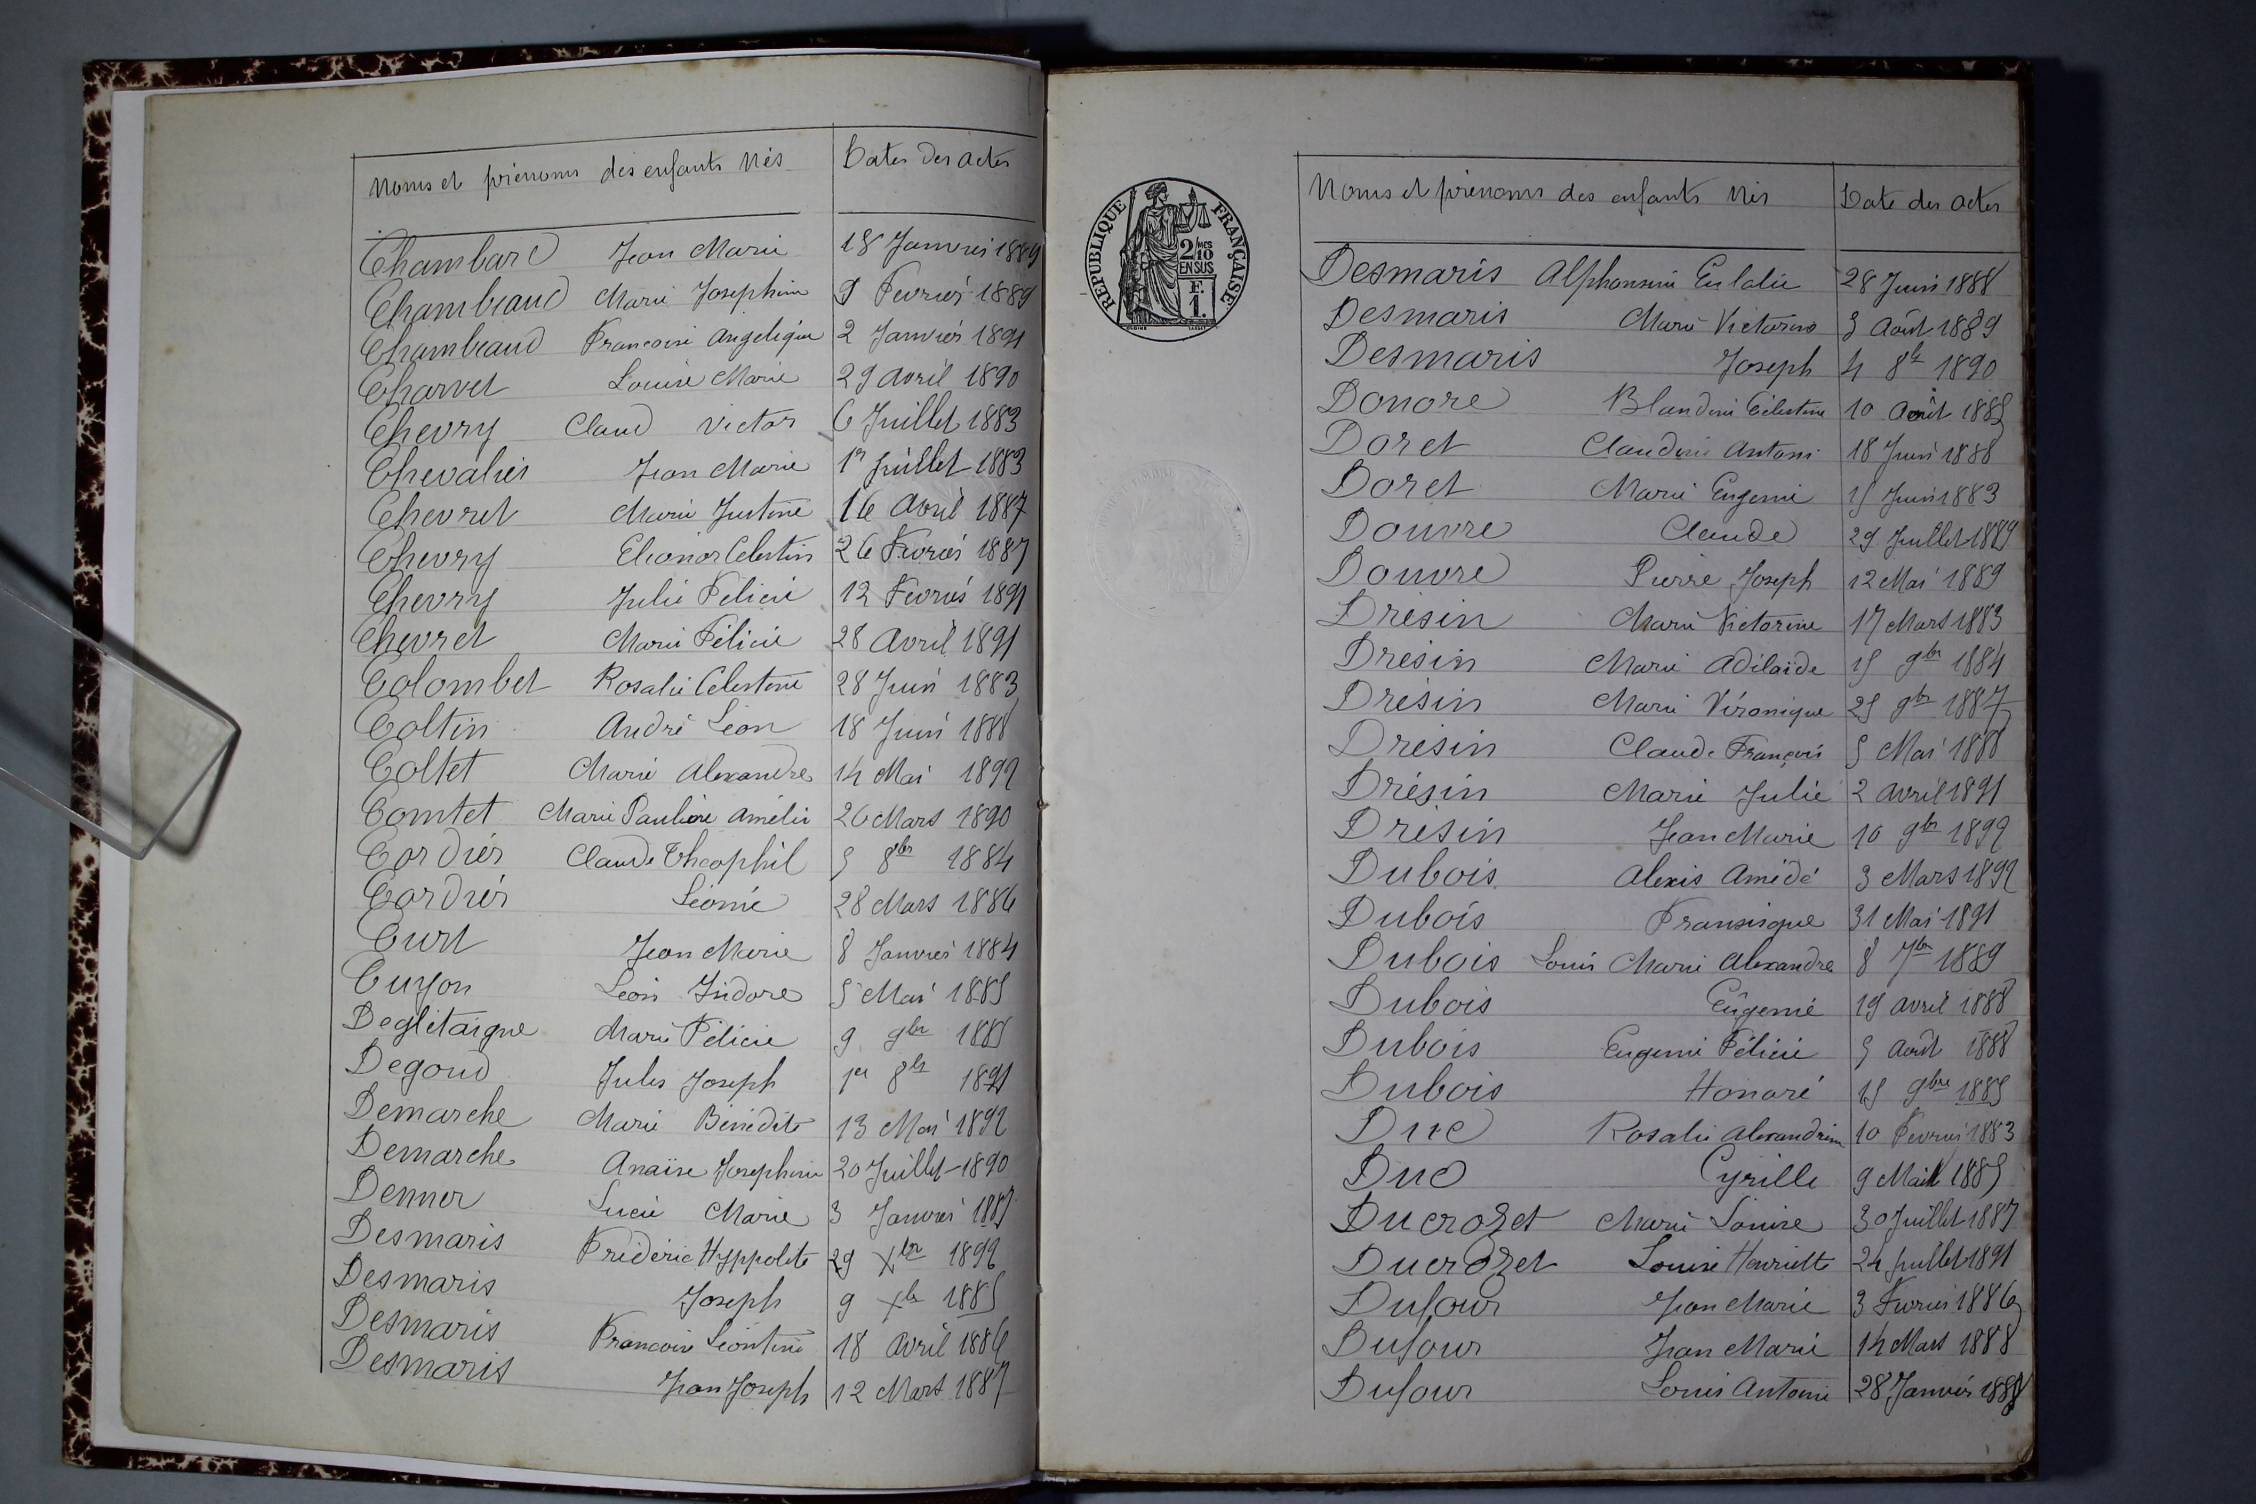 Noms et prénoms des enfants Nés Dates des actes
Chambard Jean Marie 18 Janvier 1889
Chambeaud Marie Josephine 9 Fevrier 1889
Chambeaud Francoise Angelique 2 Janvier 1891
Charvet Louise Marie 29 Avril 1890
Chevry Claud Victor 6 Juillet 1883
Chevalier Jean Marie 1er Juillet 1883
Chevret Marie Justine 16 Avril 1887
Chevry Elionor Celestin 26 Fevrier 1887
Chevry Julie Félicie 12 Fevrier 1891
Chevret Marie Félicie 28 Avril 1891
Colombet Rosalie Celestine 28 Juin 1883
Coltin André Léon 18 Juin 1888
Coltet Marie Alexandre 14 Mai 1892
Comtet Marie Pauline Amélie 26 Mars 1890
Cordier Claude Théophil 5 8bre 1884
Cordier Léonie 28 Mars 1886
Curt Jean Marie 8 Janvier 1884
Cuyon Léon Isidore 5 Mai 1885
Deglétaigne Marie Félicie 9 9bre 1885
Degoud Jules Joseph 1er 8bre 1891
Demarche Marie Bénédite 13 Mai 1892
Demarche Anaïse Josephine 20 Juillet 1890
Denner Lucie Marie 3 Janvier 1887
Desmaris Frédéric Hyppolite 29 Xbre 1892
Desmaris Joseph 9 Xbre 1885
Desmaris Francoise Léontine 18 Avril 1886
Desmaris Jean Joseph 12 Mars 1887
REPUBLIQUE FRANÇAISE
2/10 MES
EN SUS
F.
1.
Noms et prénoms des enfants Nés Date des actes
Desmaris Alphonsine Eulalie 28 Juin 1888
Desmaris Marie Victorine 3 Août 1889
Desmaris Joseph 4 8bre 1890
Donore Blandine Célestine 10 Août 1885
Doret Claudine Antoni 18 Juin 1888
Doret Marie Eugenie 15 Juin 1883
Douvre Claude 29 Juillet 1889
Douvre Pierre Joseph 12 Mai 1889
Drésin Marie Victorine 17 Mars 1883
Drésin Marie Adélaïde 15 9bre 1884
Drésin Marie Véronique 25 9bre 1887
Drésin Claude François 5 Mai 1888
Drésin Marie Julie 2 Avril 1891
Drésin Jean Marie 10 9bre 1892
Dubois Alexis Amédé 3 Mars 1892
Dubois Fransisque 31 Mai 1891
Dubois Louis Marie Alexandre 8 7bre 1889
Dubois Eugenie 19 Avril 1888
Dubois Eugenie Félicie 5 Août 1888
Dubois Honoré 15 9bre 1885
Duc Rosalie Alexandrine 10 Fevrier 1883
Duc Cyrille 9 Mai 1885
Ducrozet Marie Louise 30 Juillet 1887
Ducrozet Louise Henriette 24 Juillet 1891
Dufour Jean Marie 3 Fevrier 1886
Dufour Jean Marie 14 Mars 1888
Dufour Louis Antoine 28 Janvier